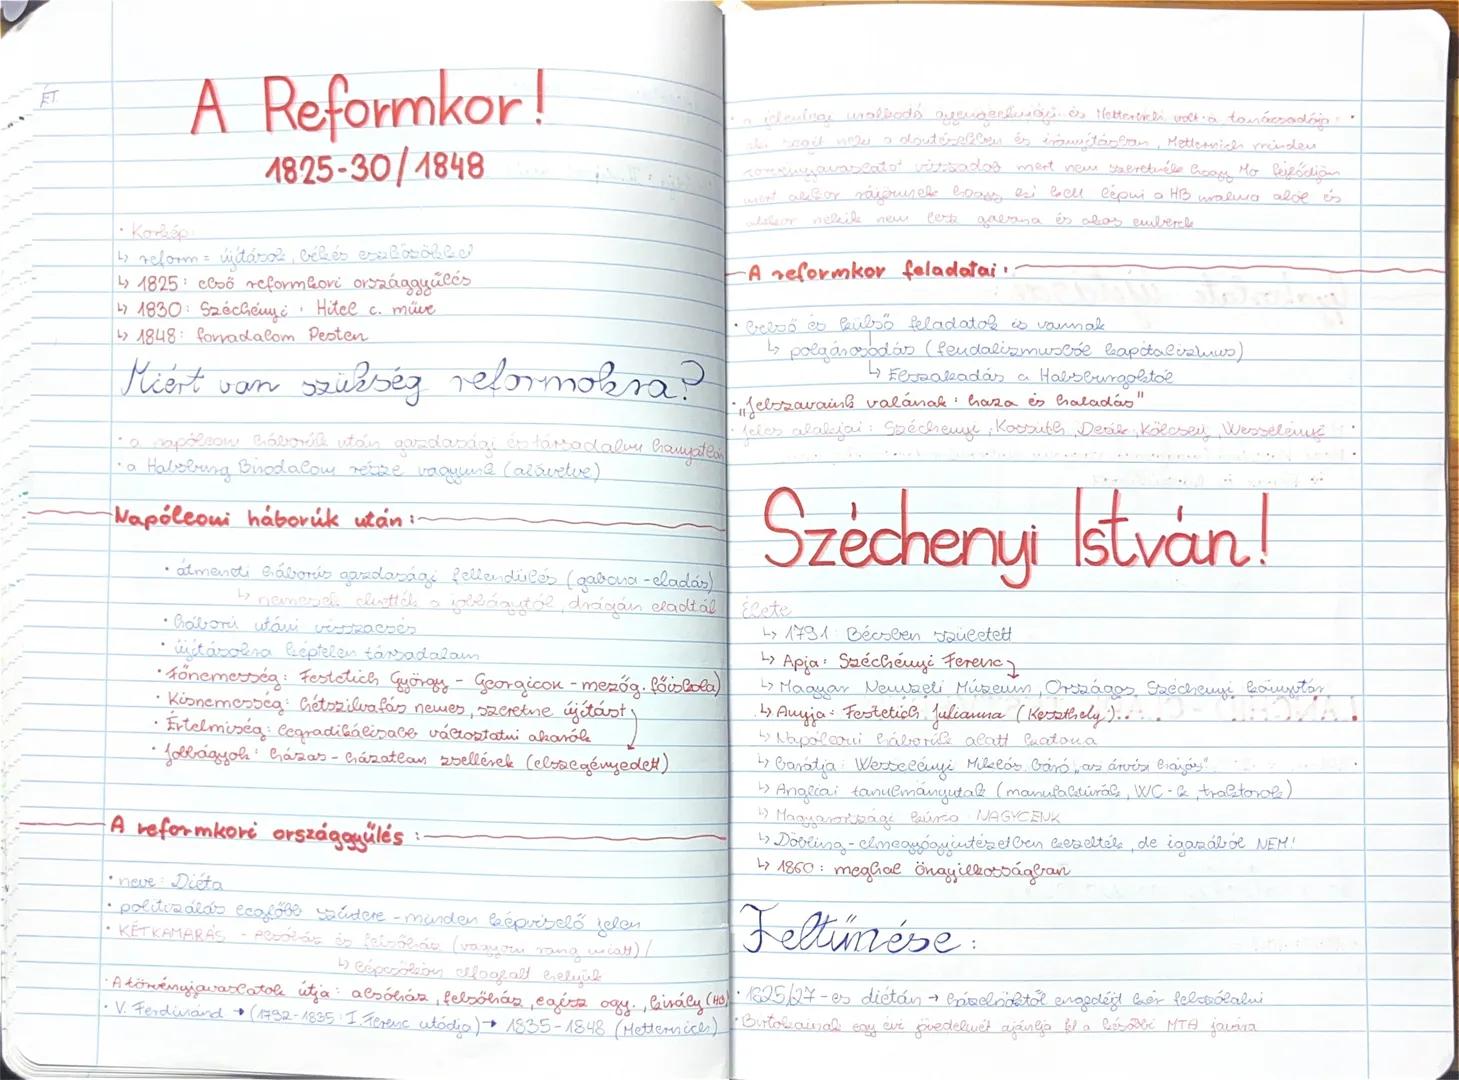 ÉT.
A Reformkor!
1825-30/1848
• Korkép:
↳ reform = újítások, békés eszközökkel
↳ 1825: első reformkori országgyűlés
↳ 1830: Széchenyi: Hitel c. műve
↳ 1848: forradalom Pesten
Miért van szükség reformokra?
• a napóleoni háborúk után gazdasági és társadalmi hanyatlás
• a Habsburg Birodalom része vagyunk (alávetve)
Napóleoni háborúk után:
• átmeneti háborús gazdasági fellendülés (gabona-eladás)
↳ nemesek elvették a jobbágytól, drágán eladták
• háború utáni visszaesés
• újításokra képtelen társadalom
• Főnemesség: Festetich György - Georgicon - mezőg. főiskola)
• Kisnemesség: hétszilvafás nemes, szeretne újítást
• Értelmiség: legradikálisabb változtatni akarók
• Jobbágyok: házas - házatlan zsellérek (elszegényedett)
A reformkori országgyűlés:
• neve: Diéta
• politizálás legfőbb színtere - minden képviselő jelen
• KÉTKAMARÁS - Alsóház és felsőház (vagyoni rang miatt) /
↳ lépcsőkön elfoglalt helyük
• A törvényjavaslatok útja: alsóház, felsőház, egész ogy., király (HB)
• V. Ferdinánd → (1792-1835: I. Ferenc utódja) → 1835-1848 (Metternich)
• a jelenlegi uralkodó gyengeelméjű és Metternich volt a tanácsadója
aki segít neki a döntésekben és irányításban, Metternich minden
törvényjavaslatot visszadob mert nem szeretnék hogy Mo fejlődjön
mert akkor rájönnek hogy ki kell lépni a HB uralma alól és
akkor nekik nem lesz gabona és olcsó emberek
A reformkor feladatai:
• belső és külső feladatok is vannak
↳ polgárosodás (feudalizmusból kapitalizmus)
↳ Elszakadás a Habsburgoktól
• "Jelszavaink valának: haza és haladás"
• Jeles alakjai: Széchenyi, Kossuth, Deák, Kölcsey, Wesselényi
Széchenyi István!
Élete
↳ 1791: Bécsben született
↳ Apja: Széchényi Ferenc
↳ Magyar Nemzeti Múzeum, Országos Széchenyi könyvtár
↳ Anyja: Festetich Julianna (Keszthely)
↳ Napóleoni háborúk alatt katona
↳ barátja: Wesselényi Miklós báró „az árvízi hajós"
↳ Angliai tanulmányutak (manufaktúrák, WC-k, traktorok)
↳ Magyarországi kúria: NAGYCENK
↳ Döbling - elmegyógyintézetben kezelték, de igazából NEM!
↳ 1860: meghal öngyilkosságban
Feltűnése:
• 1825/27-es diétán → házelnöktől engedélyt kér felszólalni
• Birtokainak egy évi jövedelmét ajánlja fel a későbbi MTA javára